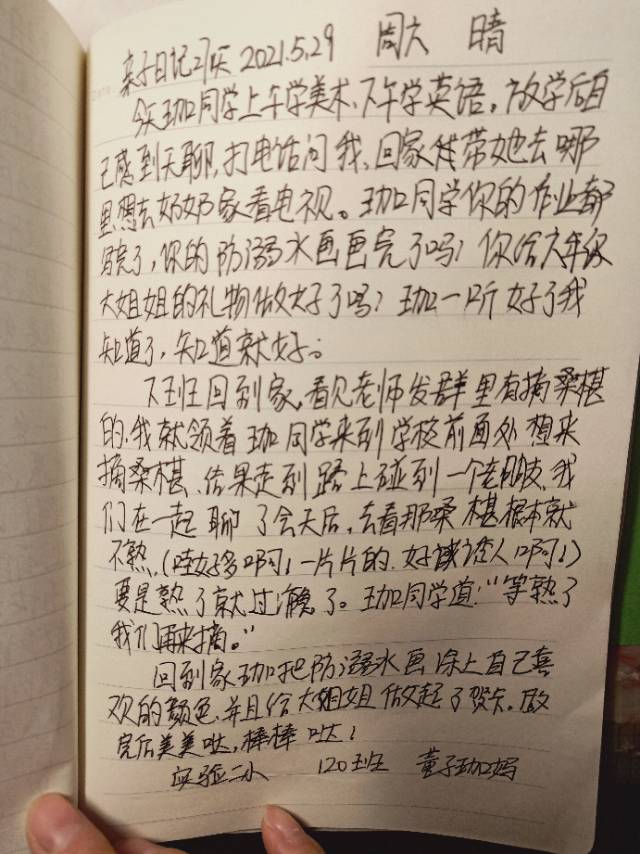 亲子日记27天 2021.5.29 周六 晴
今天珈同学上午学美术、下午学英语。放学后自
己感到无聊,打电话问我、回家能带她去哪
里想去奶奶家看电视。珈同学你的作业都
写完了,你的防溺水画画完了吗?你给六年级
大姐姐的礼物做好了吗?珈一听好了我
知道了,知道就好。
下班回到家,看见老师发群里有摘桑椹
的,我就领着珈同学来到学校前面处想来
摘桑椹、结果走到路上碰到一个老朋友、我
们在一起聊了会天后,去看那桑椹根本就
不熟,(哇好多啊!一片片的.好诱人啊!)
要是熟了就过瘾了。珈同学道:“等熟了
我们再来摘。”
回到家珈把防溺水画涂上自己喜
欢的颜色,并且给大姐姐做起了贺卡。做
完后美美哒,棒棒哒!
实验二小 120班 董子珈妈